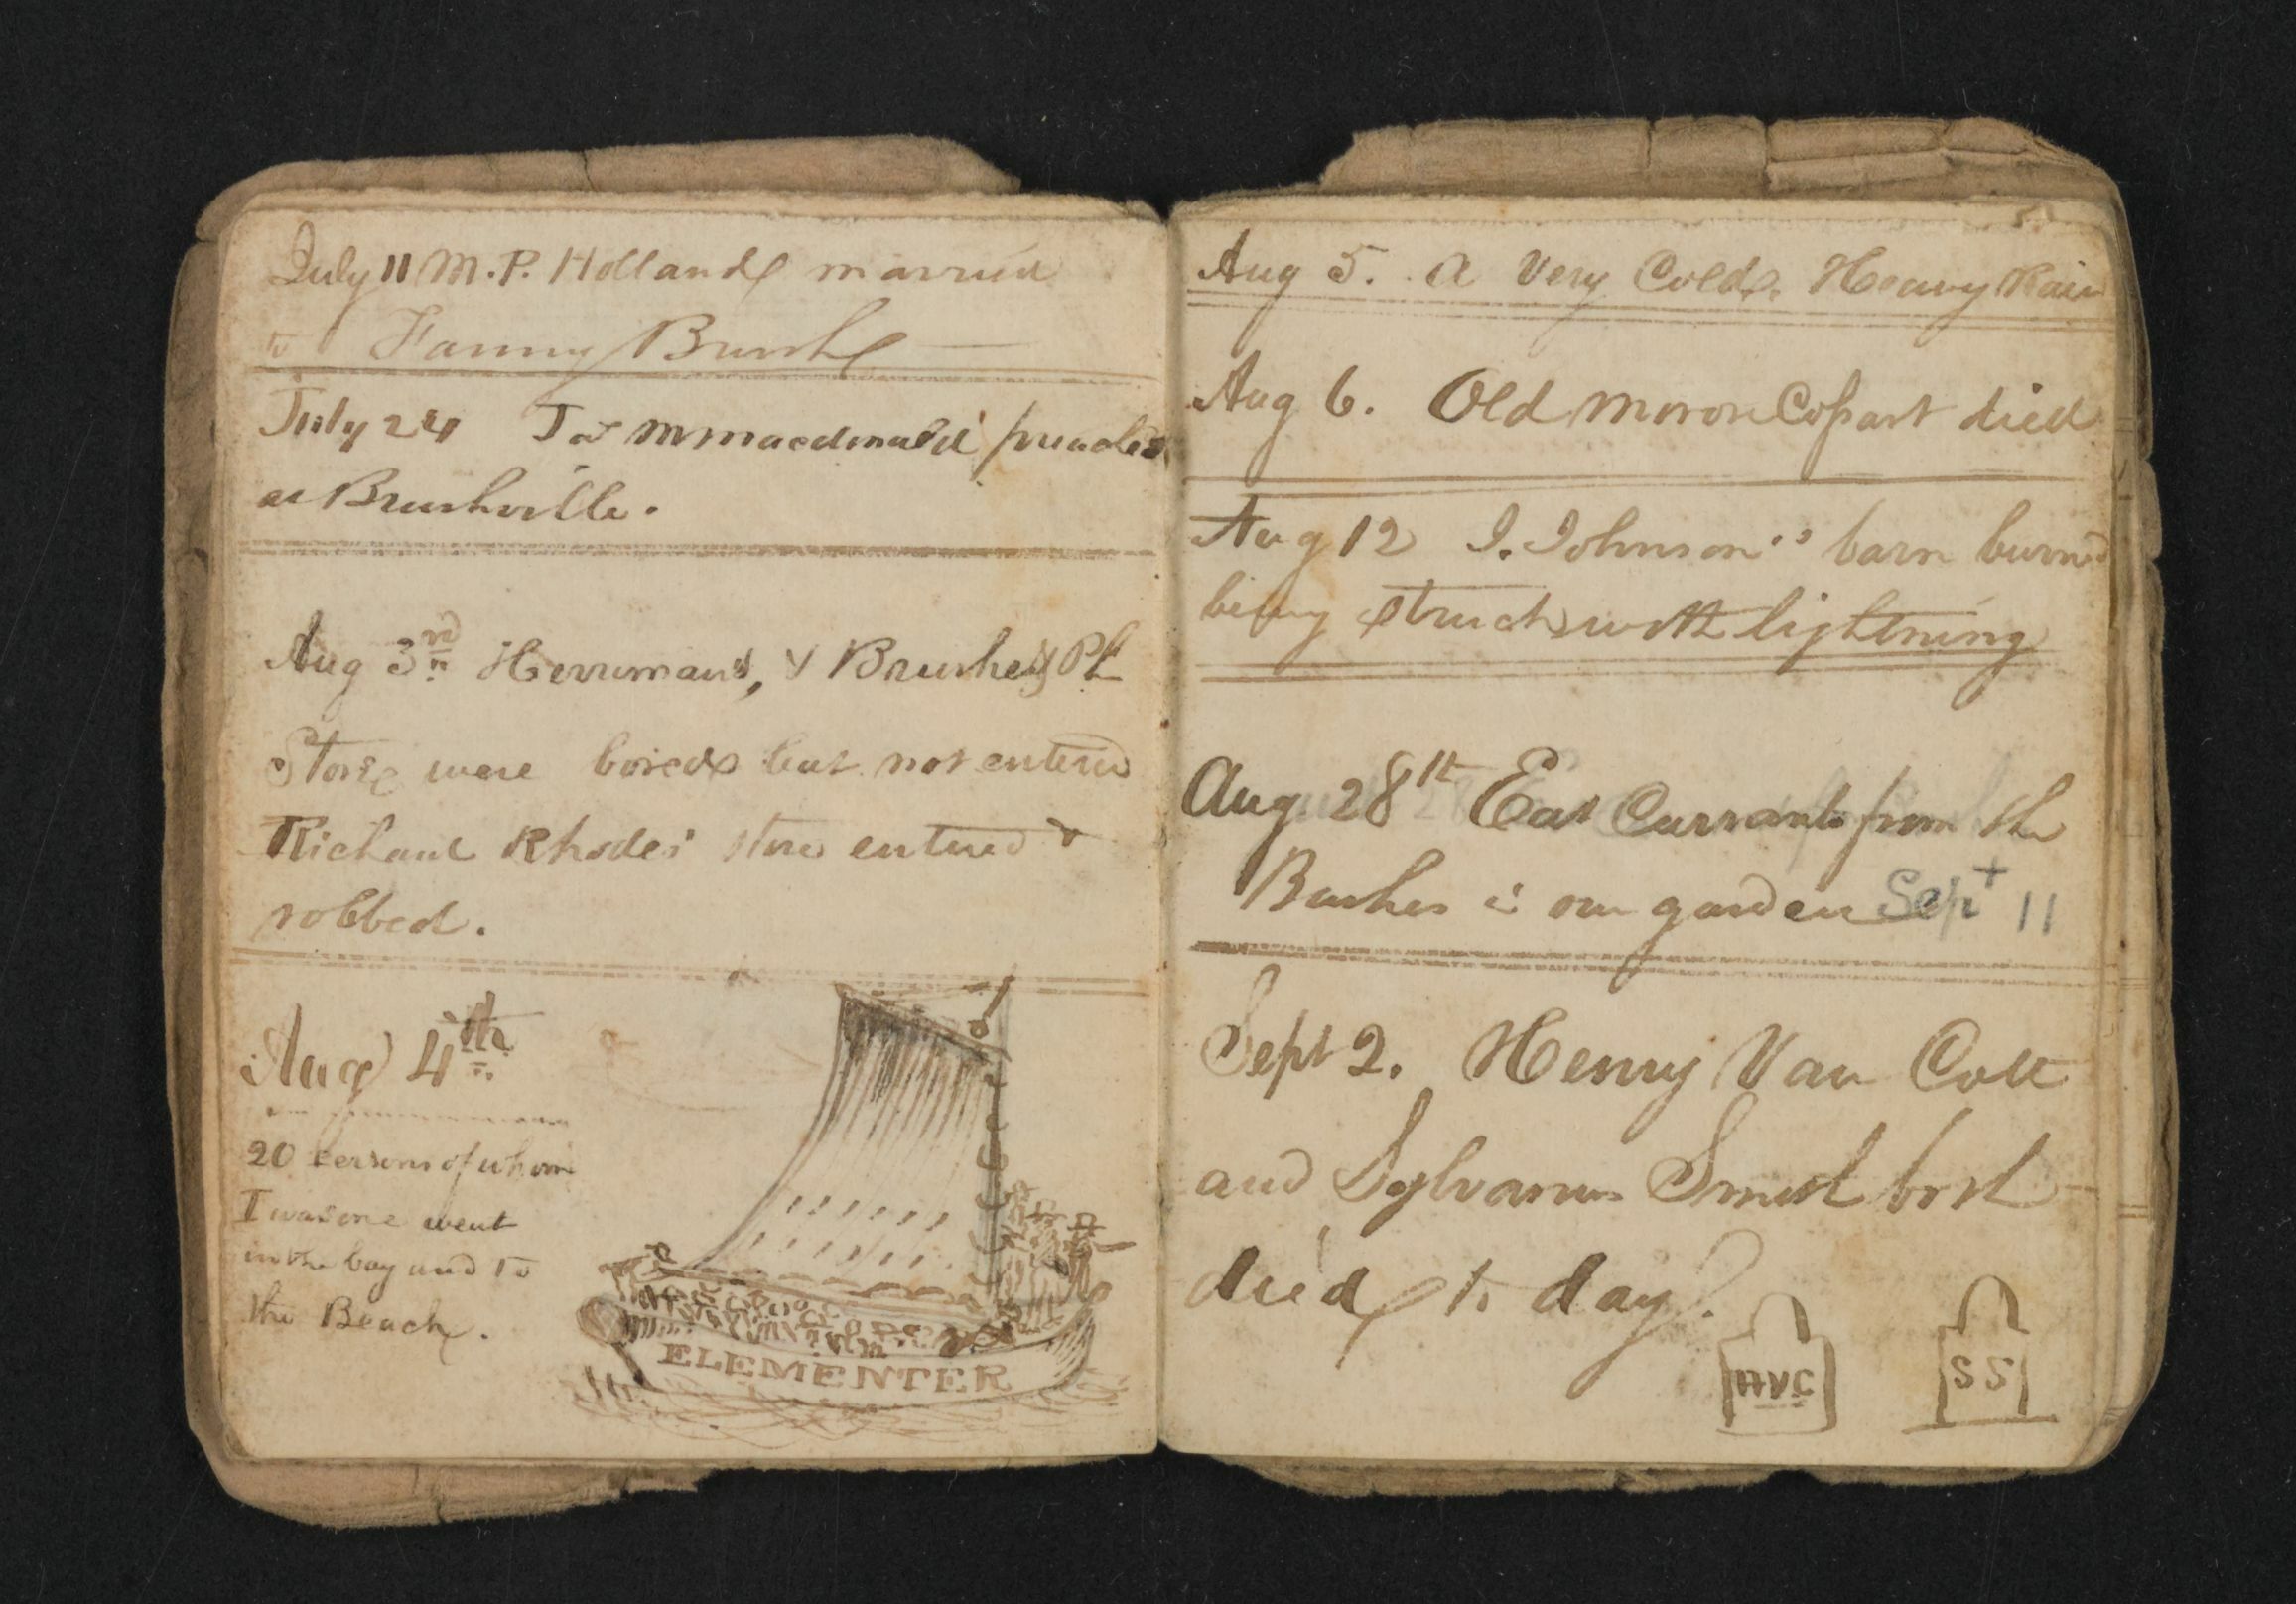 July 11 M. P. Holland married
to Fanny Brush
July 24 Jas mmacdonald preached
at Brushville.
Aug 3rd Herrimans, & Brushes
Store were bored but not entered
Richard Rhodes' store entered &
robbed.
Aug 4th
20 persons of whom
I was one went
in the bay and to
the Beach.
ELEMENTER
Aug 5. a Very Cold. Heavy Rain
Aug 6. Old died
Aug 12 I. Johnson's barn burned
being struck with lightning
Aug 28th Eat Currants from the
Bushes in our garden Sept 11
Sept 2. Henry Van Cott
and Sylvanus Smith both
died to day.
HVC
SS